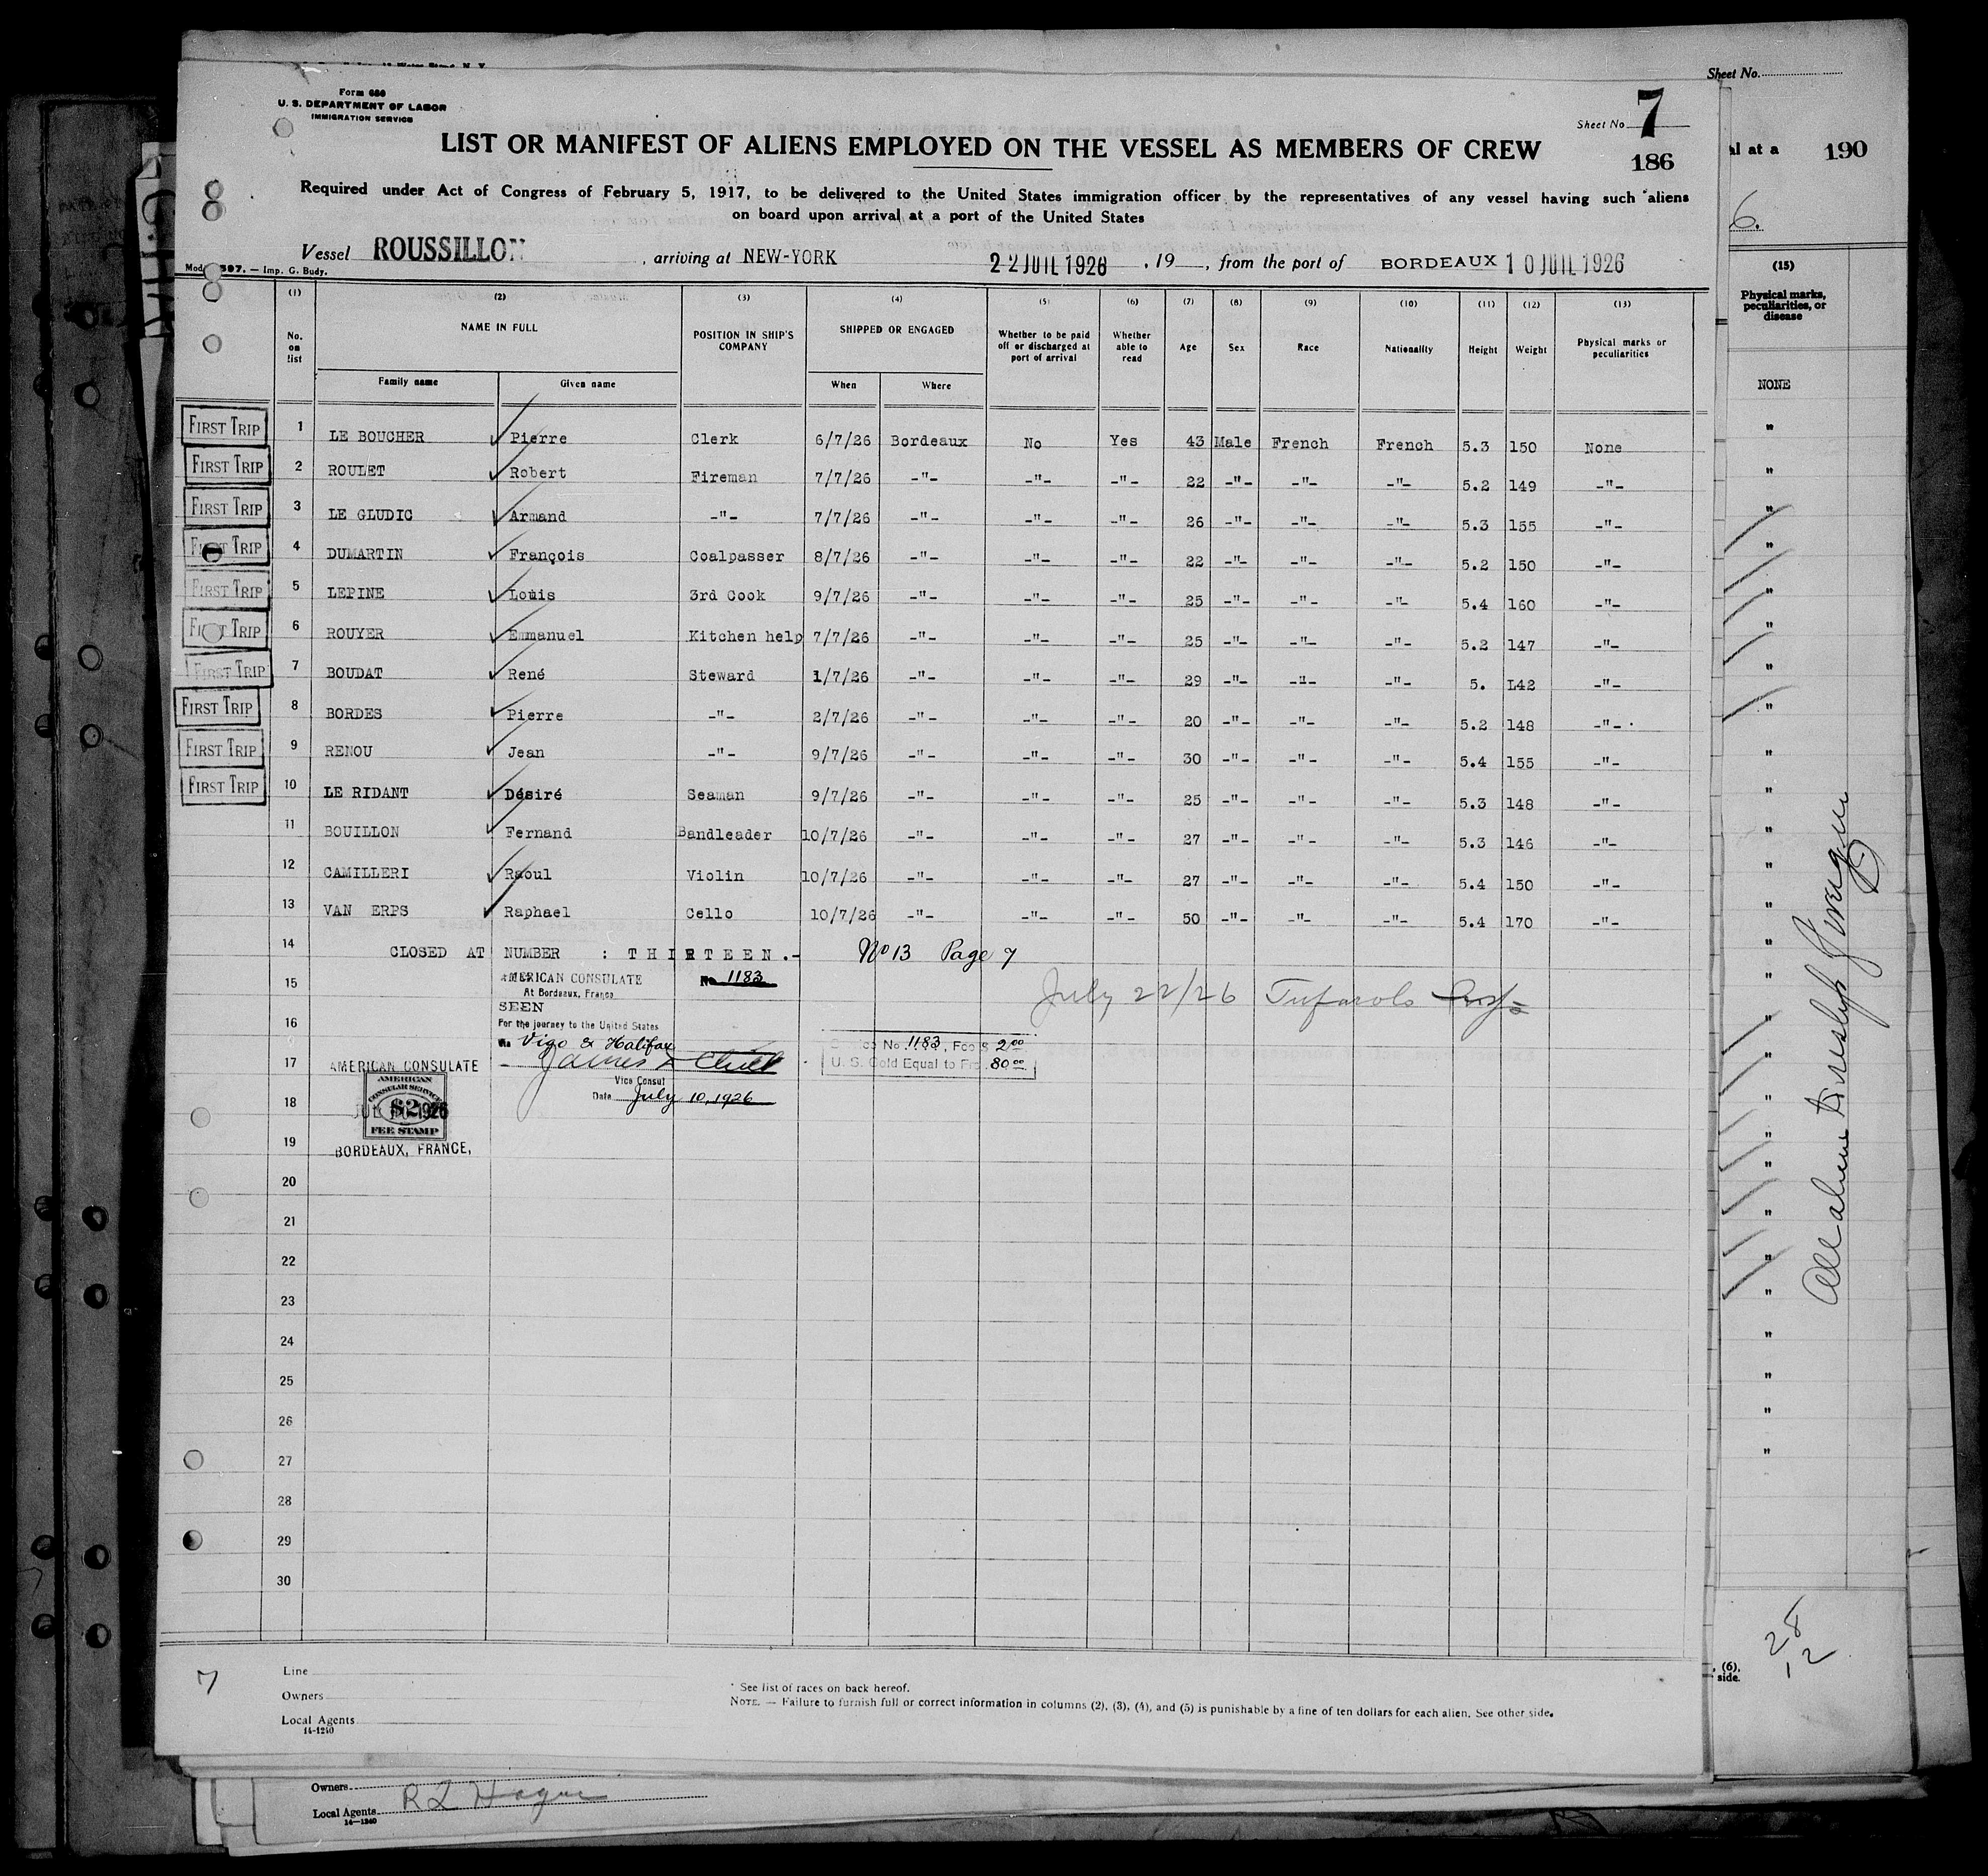 Sheet No.
Form 680
U. S. DEPARTMENT OF LABOR
IMMIGRATION SERVICE
Sheet No 7
LIST OR MANIFEST OF ALIENS EMPLOYED ON THE VESSEL AS MEMBERS OF CREW
186
al at a 190
Required under Act of Congress of February 5, 1917, to be delivered to the United States immigration officer by the representatives of any vessel having such aliens
on board upon arrival at a port of the United States
6.
Vessel ROUSSILLON, arriving at NEW-YORK 22 JUIL 1926, 19, from the port of BORDEAUX 10 JUIL 1926
597. — Imp. G. Budy.
(1) (2) (3) (4) (5) (6) (7) (8) (9) (10) (11) (12) (13)
No. on list
NAME IN FULL
Family name Given name
POSITION IN SHIP'S COMPANY
SHIPPED OR ENGAGED
When Where
Whether to be paid off or discharged at port of arrival
Whether able to read
Age Sex Race Nationality Height Weight
Physical marks or peculiarities
(15)
Physical marks, peculiarities, or disease
NONE
FIRST TRIP 1 LE BOUCHER Pierre Clerk 6/7/26 Bordeaux No Yes 43 Male French French 5.3 150 None
FIRST TRIP 2 ROULET Robert Fireman 7/7/26 -"- -"- -"- 22 -"- -"- -"- 5.2 149 -"-
FIRST TRIP 3 LE GLUDIC Armand -"- 7/7/26 -"- -"- -"- 26 -"- -"- -"- 5.3 155 -"-
FIRST TRIP 4 DUMARTIN François Coalpasser 8/7/26 -"- -"- -"- 22 -"- -"- -"- 5.2 150 -"-
FIRST TRIP 5 LEPINE Louis 3rd Cook 9/7/26 -"- -"- -"- 25 -"- -"- -"- 5.4 160 -"-
FIRST TRIP 6 ROUYER Emmanuel Kitchen help 7/7/26 -"- -"- -"- 25 -"- -"- -"- 5.2 147 -"-
FIRST TRIP 7 BOUDAT René Steward 1/7/26 -"- -"- -"- 29 -"- -"- -"- 5. 142 -"-
FIRST TRIP 8 BORDES Pierre -"- 2/7/26 -"- -"- -"- 20 -"- -"- -"- 5.2 148 -"-
FIRST TRIP 9 RENOU Jean -"- 9/7/26 -"- -"- -"- 30 -"- -"- -"- 5.4 155 -"-
FIRST TRIP 10 LE RIDANT Désiré Seaman 9/7/26 -"- -"- -"- 25 -"- -"- -"- 5.3 148 -"-
11 BOUILLON Fernand Bandleader 10/7/26 -"- -"- -"- 27 -"- -"- -"- 5.3 146 -"-
12 CAMILLERI Raoul Violin 10/7/26 -"- -"- -"- 27 -"- -"- -"- 5.4 150 -"-
13 VAN ERPS Raphael Cello 10/7/26 -"- -"- -"- 50 -"- -"- -"- 5.4 170 -"-
14 CLOSED AT NUMBER : THIRTEEN.- No 13 Page 7
15 AMERICAN CONSULATE No. 1183
At Bordeaux, France
July 22/26
SEEN
16 For the journey to the United States
Via Vigo & Halifax
Service No. 1183, Fee $ 2.00
U. S. Gold Equal to Frs. 80.00
17 AMERICAN CONSULATE
Vice Consul
Date July 10, 1926
18 AMERICAN
CONSULAR SERVICE
$2
FEE STAMP
JUL 10 1926
19 BORDEAUX, FRANCE,
20
21
22
23
24
25
26
27
28
29
30
7
Line
Owners
Local Agents
14-1240
* See list of races on back hereof.
NOTE. — Failure to furnish full or correct information in columns (2), (3), (4), and (5) is punishable by a fine of ten dollars for each alien. See other side.
28
12
, (6),
side.
Owners
Local Agents R L Hague
14-1240